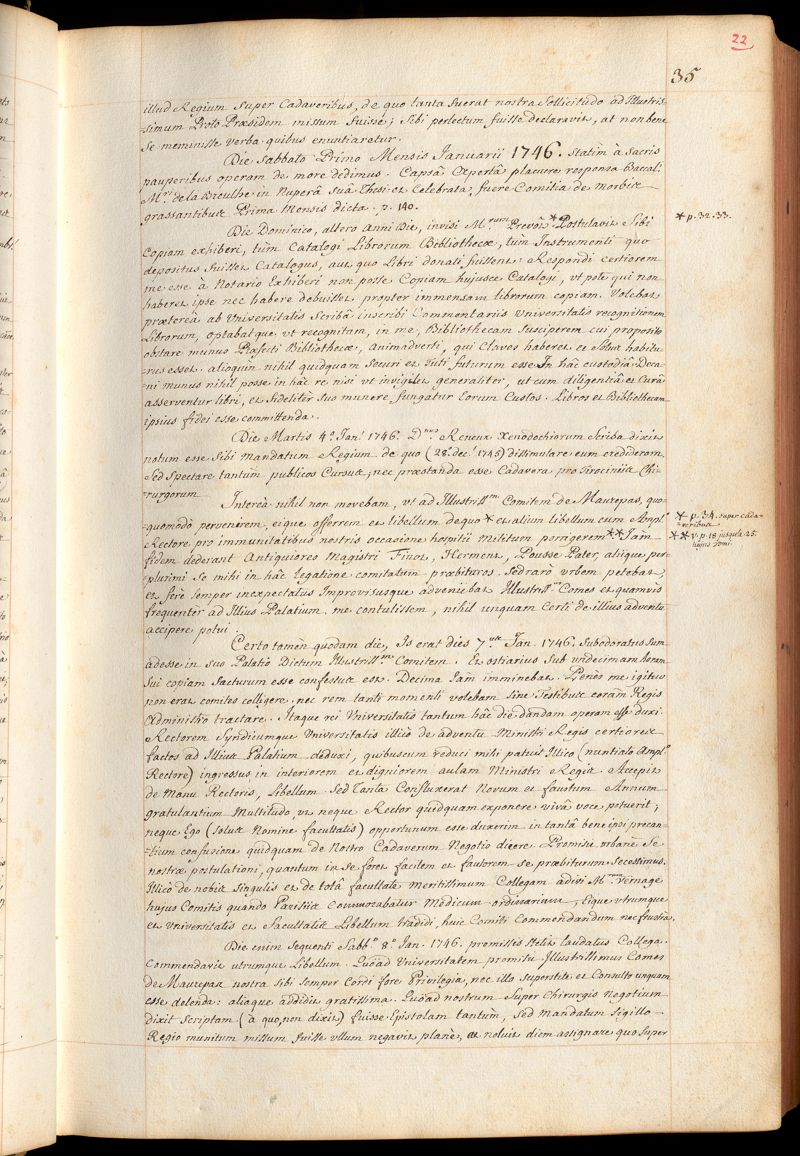 22
35
illud Regium super Cadaveribus, de quo tanta fuerat nostra sollicitudo ad Illustris-
-simum Proto Præsidem missum fuisse; sibi perlectum fuisse declaravit, at non bene
se meminisse verba quibus enuntiaretur.
Die Sabbato Primo Mensis Januarii 1746. Statim à Sacris
pauperibus operam de more dedimus. Capsâ Apertâ placuere responsa Baccal.
M.ri de la Bieulhe in Nuperâ suâ Thesi et Celebrata fuere Comitia de morbis
grassantibus Prima Mensis dicta. p. 140.
Die Dominico, altero Anni Die, invisi M.rum Prevôt * Postulavit sibi
* p. 32. 33.
Copiam exhiberi, tùm Catalogi Librorum Bibliothecæ, tùm Instrumenti quo
depositus fuisset Catalogus, aut quo Libri donati fuissent. Respondi certiorem
me esse à Notario Exhiberi non posse Copiam hujusce Catalogi, ut pote qui non
haberet ipse nec habere debuisset propter immensam librorum copiam. Volebat
prætereà ab Universitatis Scribâ inscribi Commentariis Universitatis recognitionem
Librorum, optabat que ut recognitam, in me, Bibliothecam susciperem cui proposito
obstare munus Præfecti Bibliothecæ, animadverti, qui Claves haberet et solus habitu-
-rus esset. alioquin nihil quidquam securi et tuti futurum esse. In hâc custodiâ Deca-
-ni munus nihil posse in hâc re nisi ut invigilet generaliter, ut cum diligentiâ et Curâ
asserventur libri, et fideliter suo munere fungatur Eorum Custos. Libros et Bibliothecam
ipsius fidei esse committenda.
Die Martis 4.ª Jan.i 1746. D.nus Reneux Xenodochiorum Scriba dixit
notum esse sibi mandatum Regium de quo (28.ª dec.i 1745) dissimulare eum credideram
sed Spectare tantùm publicos Cursus, nec præstanda esse Cadavera pro Tirociniis Chi-
-rurgorum.
Intereà nihil non movebam, ut ad Illustriss.m Comitem de Maurepas, quo-
quomodò pervenirem, eique offerrem et libellum de quo * et alium libellum cum Ampl.º
* p. 34. super cada-
veribus
Rectore pro immunitatibus nostris occasione hospitii Militum porrigerem ** Jam
** v. p. 18 jusqu'à 25.
hujus tomi.
fidem dederant Antiquiores Magistri Finot, Herment, Pousse Pater, aliique per-
plurimi se mihi in hâc legatione comitatum præbituros. Sed rarò urbem petebat,
et ferè semper inexpectatus Improvisusque adveniebat Illustriss.m Comes et quamvis
frequentèr ad Illius Palatium me contulissem, nihil unquam Certi de illius adventu
accipere potui.
Certo tamèn quodam die, Is erat dies 7.us Jan. 1746. Subodoratus sum
adesse in suo Palatio Dictum Illustriss.m Comitem. Et ostiarius sub undecimam horam
sui copiam facturum esse confessus est. Decima Jam imminebat. Penès me igitur
non erat comites colligere, nec rem tanti momenti volebam sine Testibus coràm Regis
Administro tractare. Itaque rei Universitatis tantùm hâc die dandam operam esse duxi.
Rectorem Syndicumque Universitatis illicò de adventu Ministri Regis certiores
factos ad Illius Palatium deduxi, quibuscum reduci mihi patuit Illico (nuntiato Ampl.º
Rectore) ingressus in interiorem et digniorem aulam Ministri Regis. Accepit
de Manu Rectoris, Libellum. Sed Tanta Confluxerat Novum et faustum Annum
gratulantium Multitudo, ut neque Rector quidquam exponere vivâ voce potuerit;
neque Ego (solus Nomine facultatis) opportunum esse duxerim in tantâ bene ipsi precan-
-tium confusione quidquam de Nostro Cadaverum Negotio dicere. Promisit urbanè se
nostræ postulationi, quantum in se foret facilem et fautorem se præbiturum. Secessimus.
Illicò de nobis singulis et de totâ facultate meritissimum Collegam adivi M.rum Vernage
hujus Comitis quando Parisiis Commorabatur Medicum ordinarium, Eique utrumque
et Universitatis et Facultatis Libellum tradidi, huic Comiti Commendandum nec frustrà.
Die enim sequenti Sabb.º 8.º Jan. 1746. promissis stetit laudatus Collega.
Commendavit utrumque Libellum. Quoad Universitatem promisit Illustrissimus Comes
de Maurepas nostra sibi semper Cordi fore Privilegia, nec illo superstite et Consulto unquam
esse delenda: aliaque addidit gratissima. Quoad nostrum super Chirurgis Negotium
dixit scriptam (à quo, non dixit) fuisse Epistolam tantùm, sed mandatum Sigillo
Regio munitum missum fuisse ullum negavit planè, et noluit diem assignare quo super